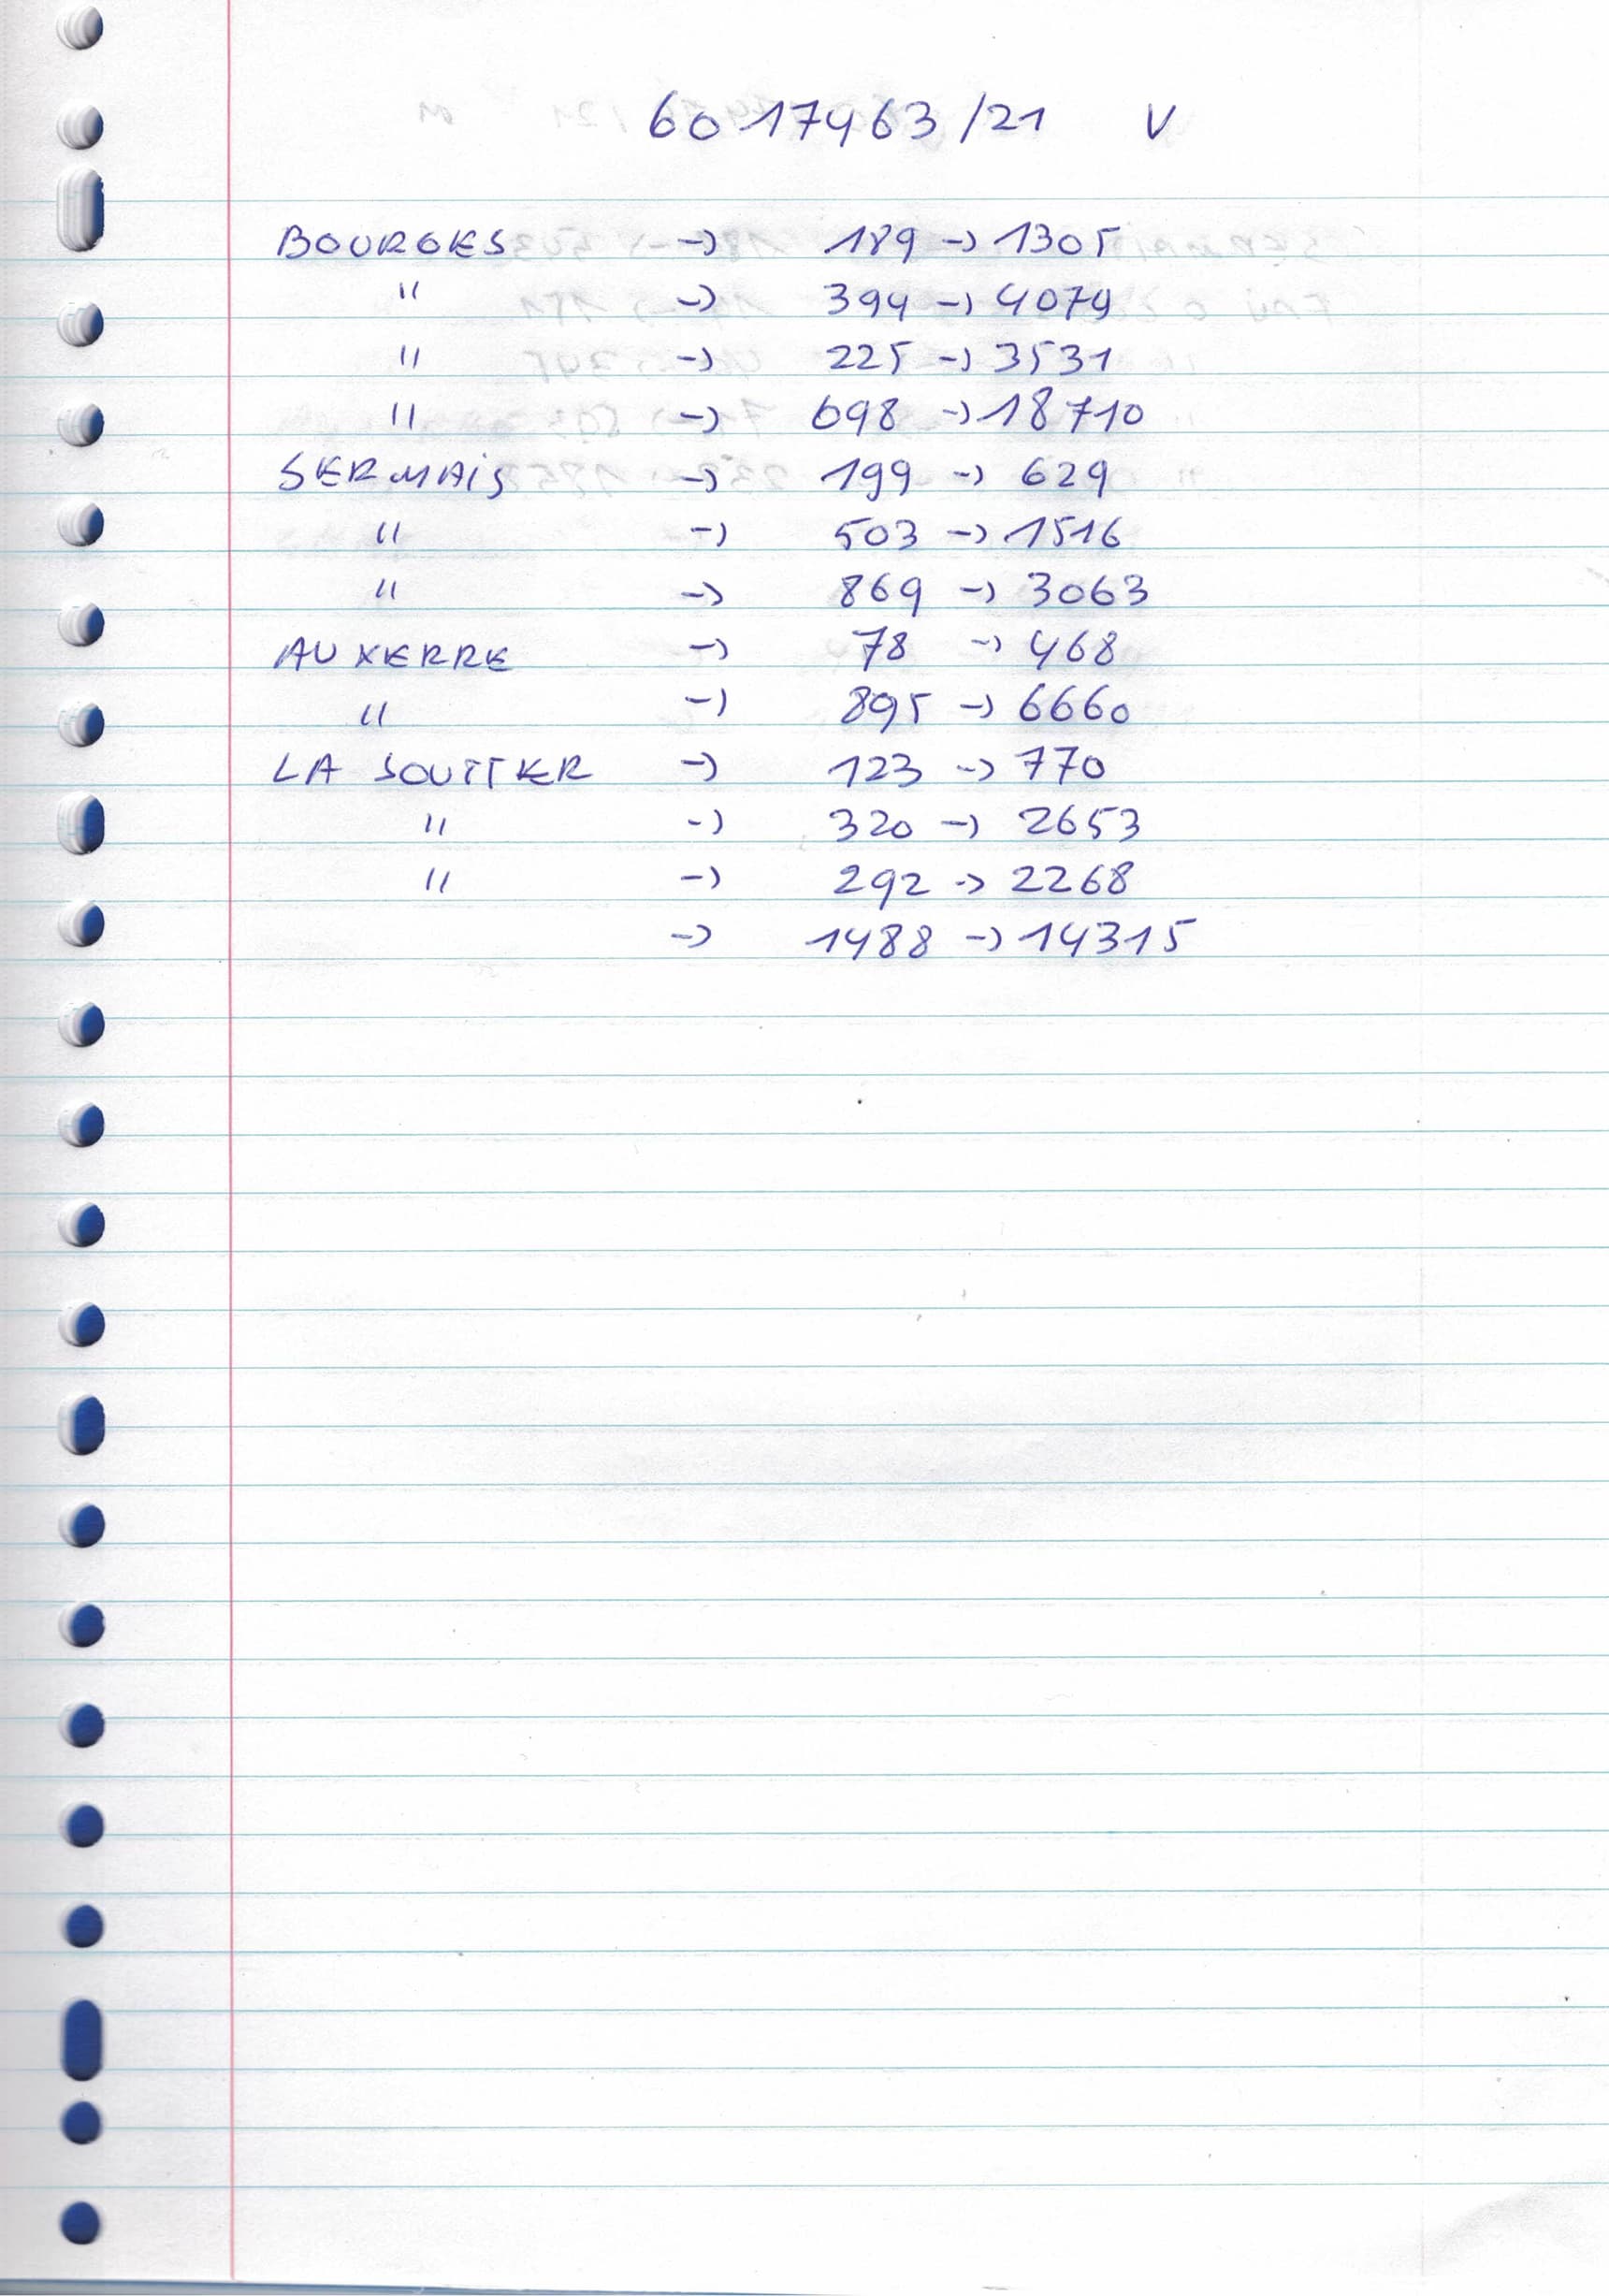 6017463/21 V
BOURGES -> 189 -> 1305
" -> 394 -> 4079
" -> 225 -> 3531
" -> 698 -> 18710
SERMAIS -> 199 -> 629
" -> 503 -> 1516
" -> 869 -> 3063
AUXERRE -> 78 -> 468
" -> 895 -> 6660
LA SOUTTER -> 123 -> 770
" -> 320 -> 2653
" -> 292 -> 2268
-> 1488 -> 14315